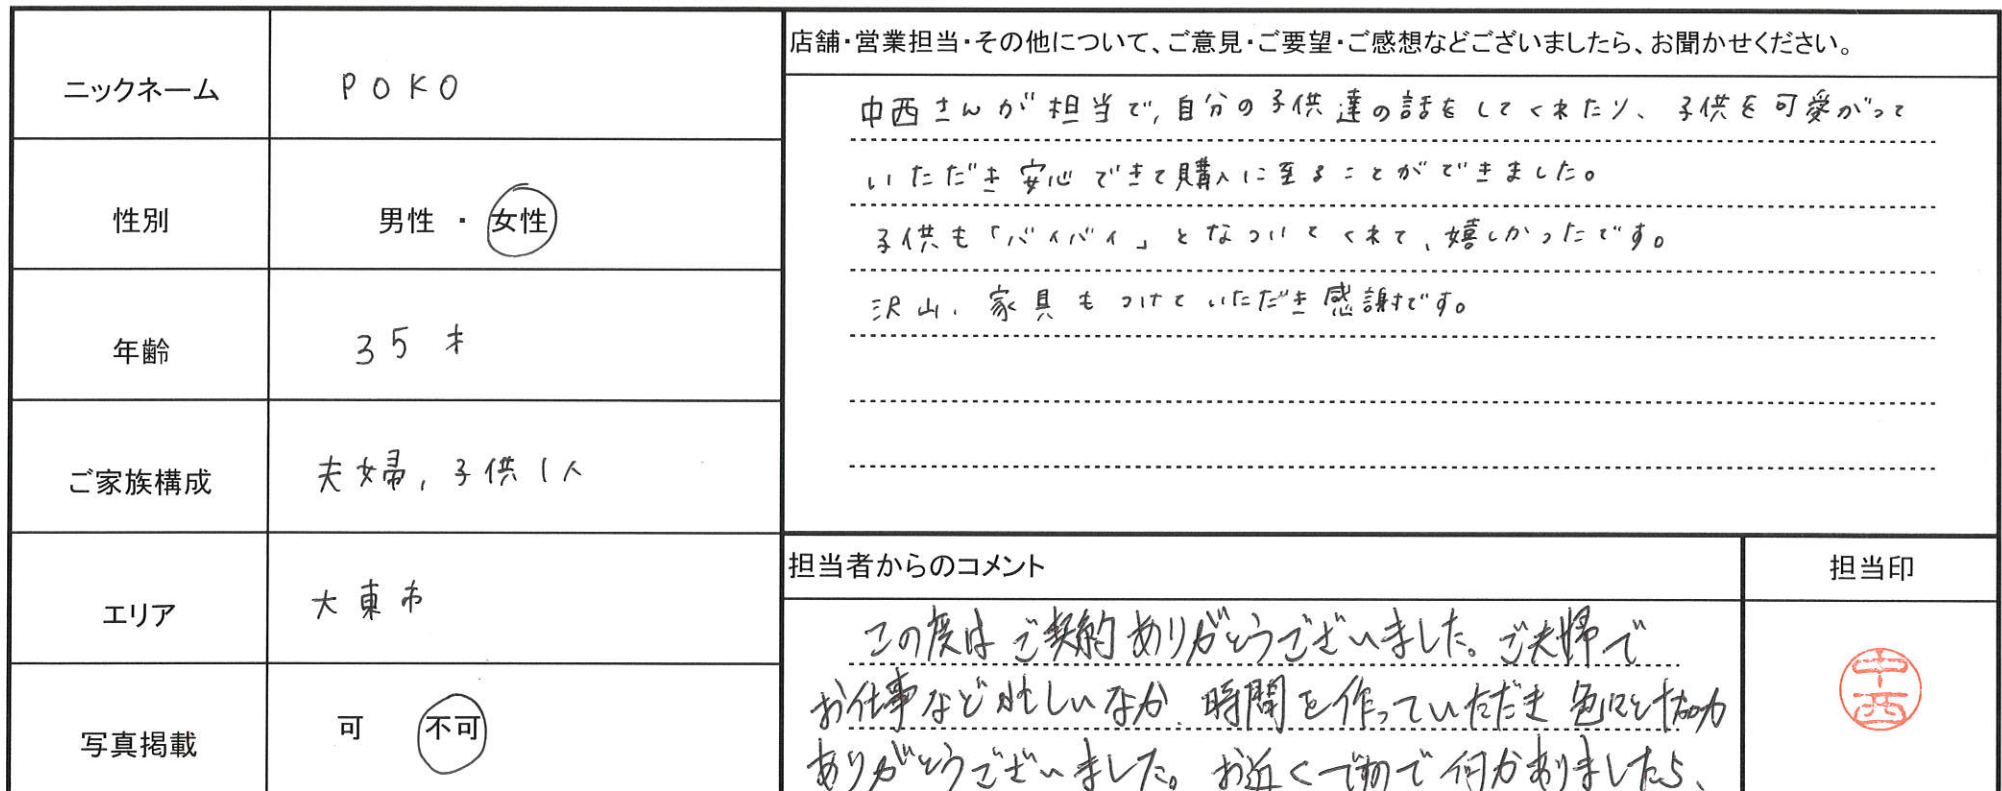 ニックネーム
POKO
性別
男性 ・ 女性
年齢
35才
ご家族構成
夫婦, 子供1人
エリア
大東市
写真掲載
可 不可
店舗・営業担当・その他について、ご意見・ご要望・ご感想などございましたら、お聞かせください。
中西さんが担当で, 自分の子供達の話をしてくれたり、子供を可愛がって
いただき安心できて購入に至ることができました。
子供も「バイバイ」となついてくれて、嬉しかったです。
沢山、家具もつけていただき感謝です。
担当者からのコメント
この度はご契約ありがとうございました。ご夫婦で
お仕事など忙しいなか、時間を作っていただき色々と協力
ありがとうございました。お近くですので何かありましたら、
担当印
中西